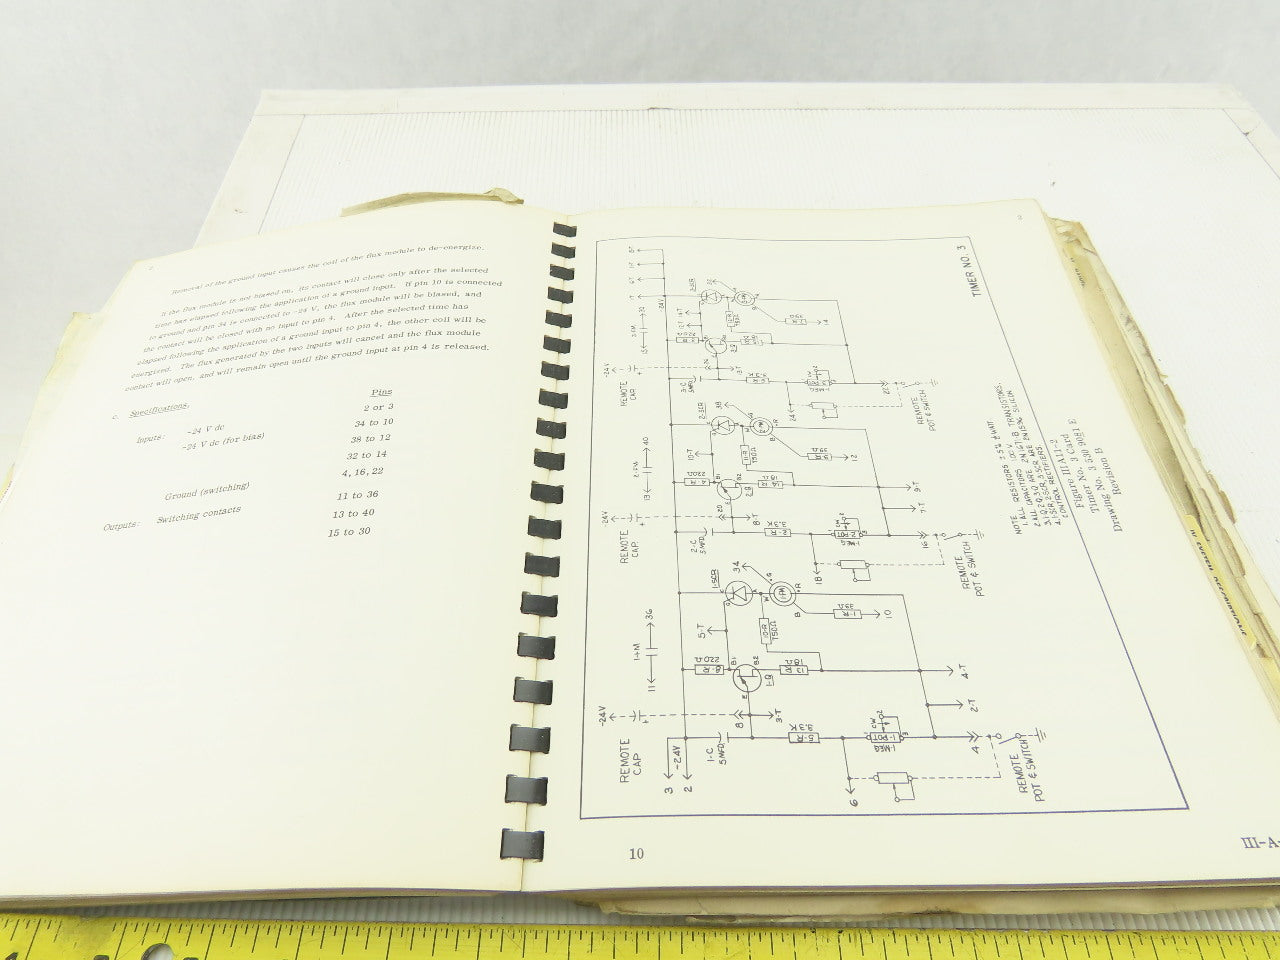 Removal of the ground input causes the coil of the flux module to de-energize.
If the flux module is not biased on, its contact will close only after the selected
time has elapsed following the application of a ground input. If pin 10 is connected
to ground and pin 34 is connected to -24 V, the flux module will be biased, and
the contact will be closed with no input to pin 4. After the selected time has
elapsed following the application of a ground input to pin 4, the other coil will be
energized. The flux generated by the two inputs will cancel and the flux module
contact will open, and will remain open until the ground input at pin 4 is released.
c. Specifications.
Pins
Inputs: -24 V dc 2 or 3
-24 V dc (for bias) 34 to 10
38 to 12
32 to 14
Ground (switching) 4, 16, 22
Outputs: Switching contacts 11 to 36
13 to 40
15 to 30
TIMER NO. 3
REMOTE CAP.
-24V
REMOTE CAP.
-24V
REMOTE CAP
-24V
3
-24V
2
1-C
5MFD
5-R
3.3K
6
1-POT
1MEG
CW
4
REMOTE
POT & SWITCH
2-T
4-T
8
3-T
1-Q
B1
B2
E
8-R
220Ω
13-R
18Ω
5-T
1-SCR
10-R
750Ω
34
1-FM
1-R
39Ω
10
11
36
2-C
5MFD
2-R
3.3K
18
2-POT
1MEG
16
REMOTE
POT & SWITCH
7-T
9-T
20
8-T
2-Q
B1
B2
220Ω
18Ω
10-T
2-SCR
11-R
750Ω
38
39Ω
12
13
2-FM
40
3-C
5MFD
24
22
REMOTE
POT & SWITCH
14
NOTE
1. ALL RESISTORS ± 5% ½ WATT.
Figure IIIA11-2
Timer No. 3 Card
No. 530 9081 E
Drawing Revision B
10
III-A-